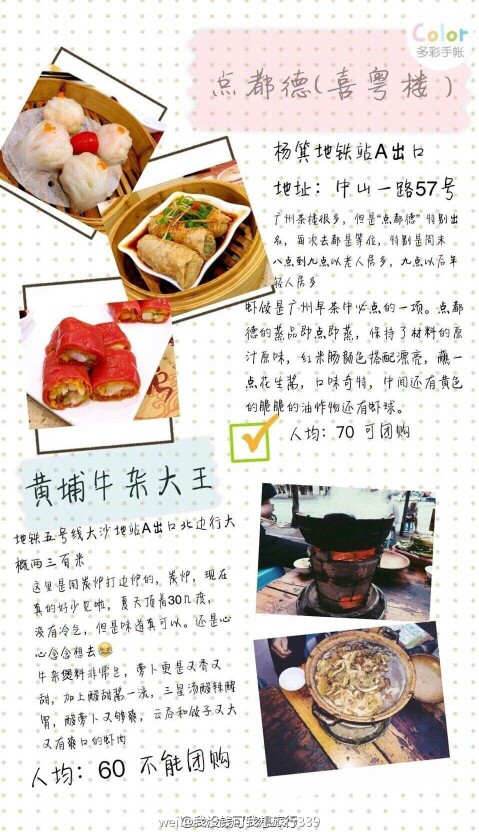 Color
多彩手帐
点都德(喜粤楼)
杨箕地铁站A出口
地址：中山一路57号
广州茶楼很多，但是“点都德”特别出
名，每次去都是等位，特别是周末
八点到九点以老人居多，九点以后年
轻人居多
虾饺是广州早茶中必点的一项。点都
德的蒸品即点即蒸，保持了材料的原
汁原味，红米肠颜色搭配漂亮，蘸一
点花生酱，口味奇特，中间还有黄色
的脆脆的油炸物还有虾球。
人均：70 可团购
黄埔牛杂大王
地铁五号线大沙地站A出口北边行大
概两三百米
这里是用炭炉打边炉的，炭炉，现在
真的好少见啦，夏天顶着30几度，
没有冷气，但是味道真可以。还是心
心念念想去
牛杂煲料非常足，萝卜更是又香又
甜，加上酸甜酱一流，三星汤酸辣醒
胃，酸萝卜又够爽，云吞和饺子又大
又有爽口的虾肉
人均：60 不能团购
@我没钱可我想旅行